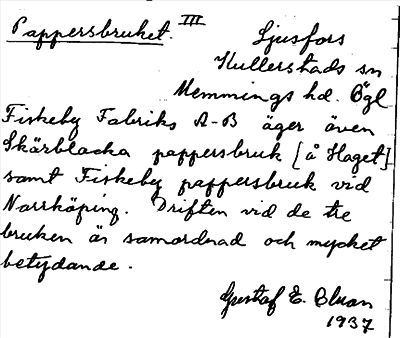 Pappersbruket. III
Ljusfors
Kullerstads sn
Memmings hd. Ögl
Fiskeby Fabriks A-B äger även
Skärblacka pappersbruk [å Haget]
samt Fiskeby pappersbruk vid
Norrköping. Driften vid de tre
bruken är samordnad och mycket
betydande.
Gustaf E.
1937